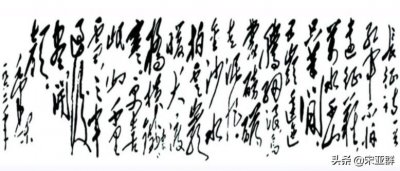 长征诗一首
红军不怕
远征难
万水千山
只等闲
五岭逶迤
腾细浪乌
蒙磅礴
走泥丸
金沙水
拍云崖
暖大渡
桥横铁索
寒更喜
岷山千里
雪三军
过后
尽开
颜
毛泽东
头条 @宋亚群